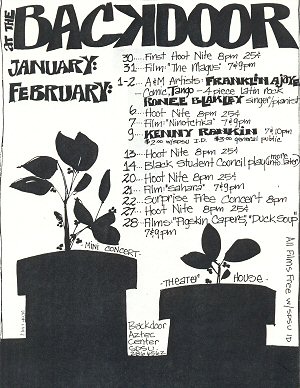 at THE BACKDOOR
JANUARY:
30.... First Hoot Nite 8pm 25¢
31.... Film "The Magus" 7&9pm
FEBRUARY:
1-2.. A&M Artists: FRANKLIN AJAYE
Comic, Tango - 4 piece latin rock
RONEE BLAKLEY singer/pianist
6.... Hoot Nite 8pm 25¢
7.... Film "Ninotchka" 7&9pm
9.... KENNY RANKIN 7&10pm
$2.00 w/SDSU I.D. $3.00 general public
13... Hoot Nite 8pm 25¢
14... Black Student Council play more info. later
20... Hoot Nite 8pm 25¢
21... Film "Sahara" 7&9pm
22... Surprise Free Concert 8pm
27... Hoot Nite 8pm 25¢
28... Films "Pigskin Capers", "Duck Soup"
7&9pm
MINI CONCERT
THEATER HOUSE
Backdoor
Aztec
Center
SDSU
286-6562
All Films Free w/SDSU ID